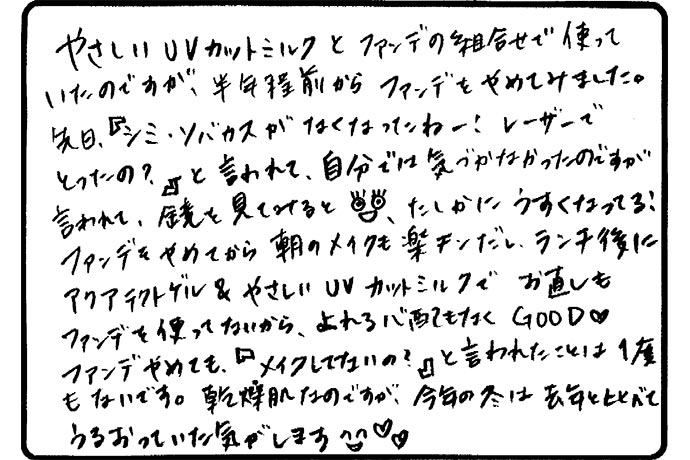 やさしいUVカットミルクとファンデの組合せで使って
いたのですが、半年程前からファンデをやめてみました。
先日、『シミ・ソバカスがなくなったねー!レーザーで
とったの?』と言われて、自分では気づかなかったのですが
言われて、鏡を見てみると、たしかにうすくなってる!
ファンデをやめてから朝のメイクも楽チンだし、ランチ後に
アクアテクトゲル&やさしいUVカットミルクでお直しも
ファンデを使ってないから、よれる心配もなくGOOD♡
ファンデやめても、『メイクしてないの?』と言われたことは1度
もないです。乾燥肌なのですが、今年の冬は去年とくらべて
うるおっていた気がします♡♡